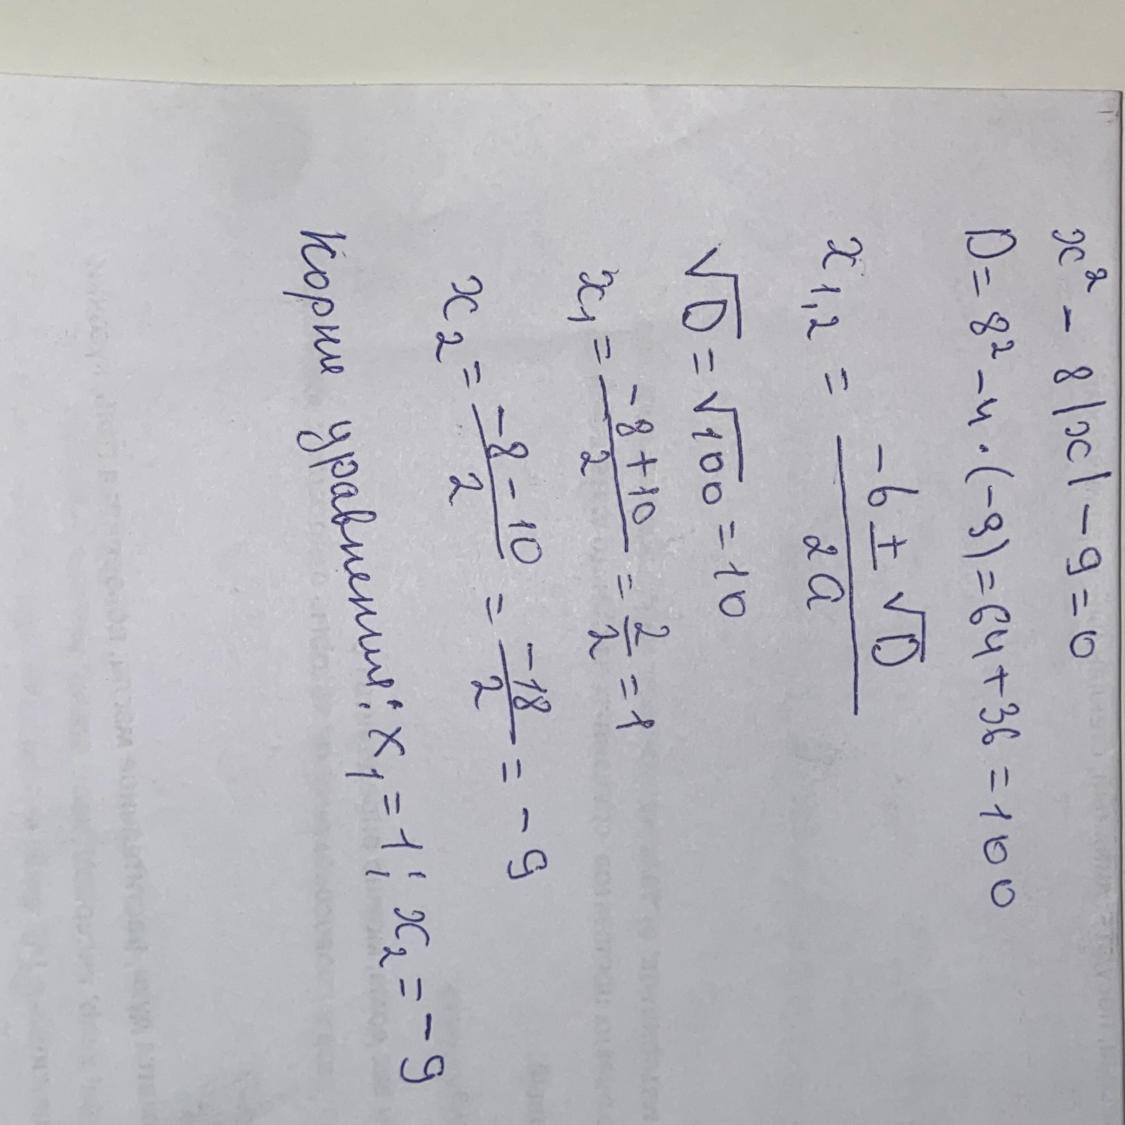 x² - 8|x| - 9 = 0
D = 8² - 4 · (-9) = 64 + 36 = 100
x₁,₂ = (-b ± √D) / 2a
√D = √100 = 10
x₁ = (-8 + 10) / 2 = 2/2 = 1
x₂ = (-8 - 10) / 2 = -18/2 = -9
Корни уравнения: x₁ = 1; x₂ = -9